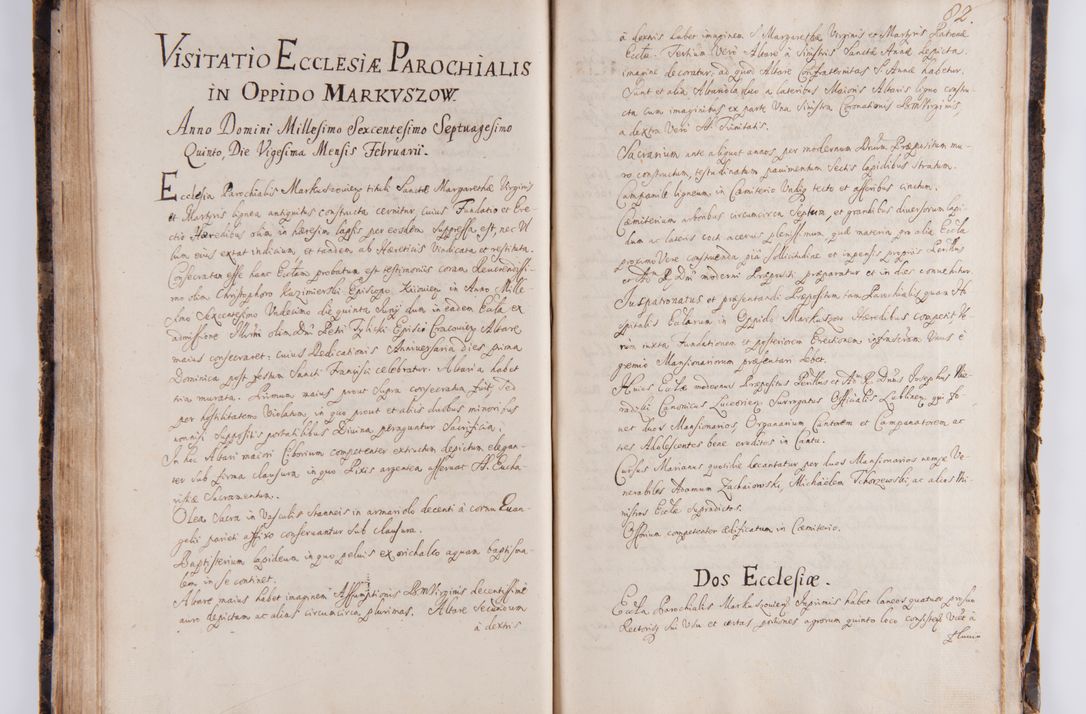 VISITATIO ECCLESIÆ PAROCHIALIS
IN OPPIDO MARKVSZOW
Anno Domini Millesimo Sexcentesimo Septuagesimo
Quinto, Die Vigesima Mensis Februarii.
Ecclesia Parochialis Markuszoviens tituli Sanctæ Margarethæ Virginis
et Martyris lignea antiquitus constructa cernitur, cuius Fundatio et Ere-
ctio Hæredibus olim in hæresim lapsis per eosdem suppressa est, nec Vl
lum eius extat indicium, et tandem ab Hæreticis Vindicata et restituta.
Consecratam esse hanc Ecclam probatum est testimoniis coram Reverendissi-
mo olim Christophoro Kazimierski Episcopo Kiiowien in Anno Mille-
simo Sexcentesimo Undecimo die quinta Iunij dum in eadem Eccla ex
admissione Illrmi olim Dni Petri Tylicki Episcopi Cracovien Altare
maius consecraret: cuius Dedicationis Anniversaria dies prima
Dominica post festum Sancti Francisci celebratur. Altaria habet
tria murata. Primum maius prout Supra consecratum fuit, sed
per hostilitatem Violatum, in quo prout et aliis duobus minoribus
nonnisi suppositis portatilibus Divina peraguntur Sacrificia.
In hoc Altari maiori Ciborium competenter extructum depictum elegan-
ter sub firma clausura, in quo Pixis argentea asservat SS. Eucha-
ristiæ Sacramentum.
Olea Sacra in Vasculis stanneis in armariolo decenti à cornu Euan-
gelii parieti affixo conservantur sub clausura.
Baptisterium lapideum in quo peluis ex orichalco aquam baptisma-
lem in se continet.
Altare maius habet imaginem Assumptionis B.M. Virginis decentissime
auro depictam ac alias circumcirca plurimas. Altare Secundum
à dextris
82.
à dextris habet imaginem S. Margarethæ Virginis et Martyris Patronæ
Eccliæ. Tertium Vero Altare à Sinistris Sanctæ Annæ depicta
imagine decoratur, ad quod Altare Confraternitas S. Annæ habetur.
Sunt et alia Altariola duo a lateribus Maioris Altaris ligno constru-
cta cum imaginibus ex parte Una Sinistra Coronationis B.M. Virginis,
a dextra Vero SS. Trinitatis.
Sacrarium ante aliquot annos per modernum Dnum Præpositum mu-
ro constructum, testudinatum pavimentum Sectis lapidibus stratum.
Campanile ligneum, in Cœmiterio Undiq tecto et asseribus cinctum.
Cœmiterium arboribus circumcirca Septum, et grandibus diversorum lapi-
dum ac lateris cocti acervis plenissimum, quæ materia pro alia Eccla
proximo Vere construenda pia sollicitudine et impensis propriis Perillris
et Adm R. Dni moderni Præpositi præparatur et in dies convehitur.
Iuspatronatus et præsentandi Præpositum tam Parochialis quam Ho-
spitalis Eccliarum in Oppido Markuszow Heredibus competit, Ve-
rum iuxta Fundationem et posteriorem Erectionem infrascriam Unus è
gremio Mansionariorum præsentari debet.
Huius Eccliæ modernus Præpositus Perillris et Adm R. Dnus Iosephus Nie-
radzki Canonicus Luceorien Surrogatus Officialis Lublinen, qui fo-
uet duos Mansionarios, Organarium Cantorem et Campanatorem, ac
tres Adolescentes bene eruditos in Cantu.
Cursus Marianus quotidie decantatur per duos Mansionarios nempe Ve-
nerabiles Adamum Zachaiowski, Michaelem Tchorzewski, ac alios Mi-
nistros Eccliæ supradictos.
Ossorium competenter ædificatum in Cœmiterio.
DOS ECCLESIÆ.
Eccla Parochialis Markuszovien Inprimis habet laneos quatuor pro suo
Rectorisq sui Usu et certas portiones agrorum quinto loco consistens Vulo à
fluvio